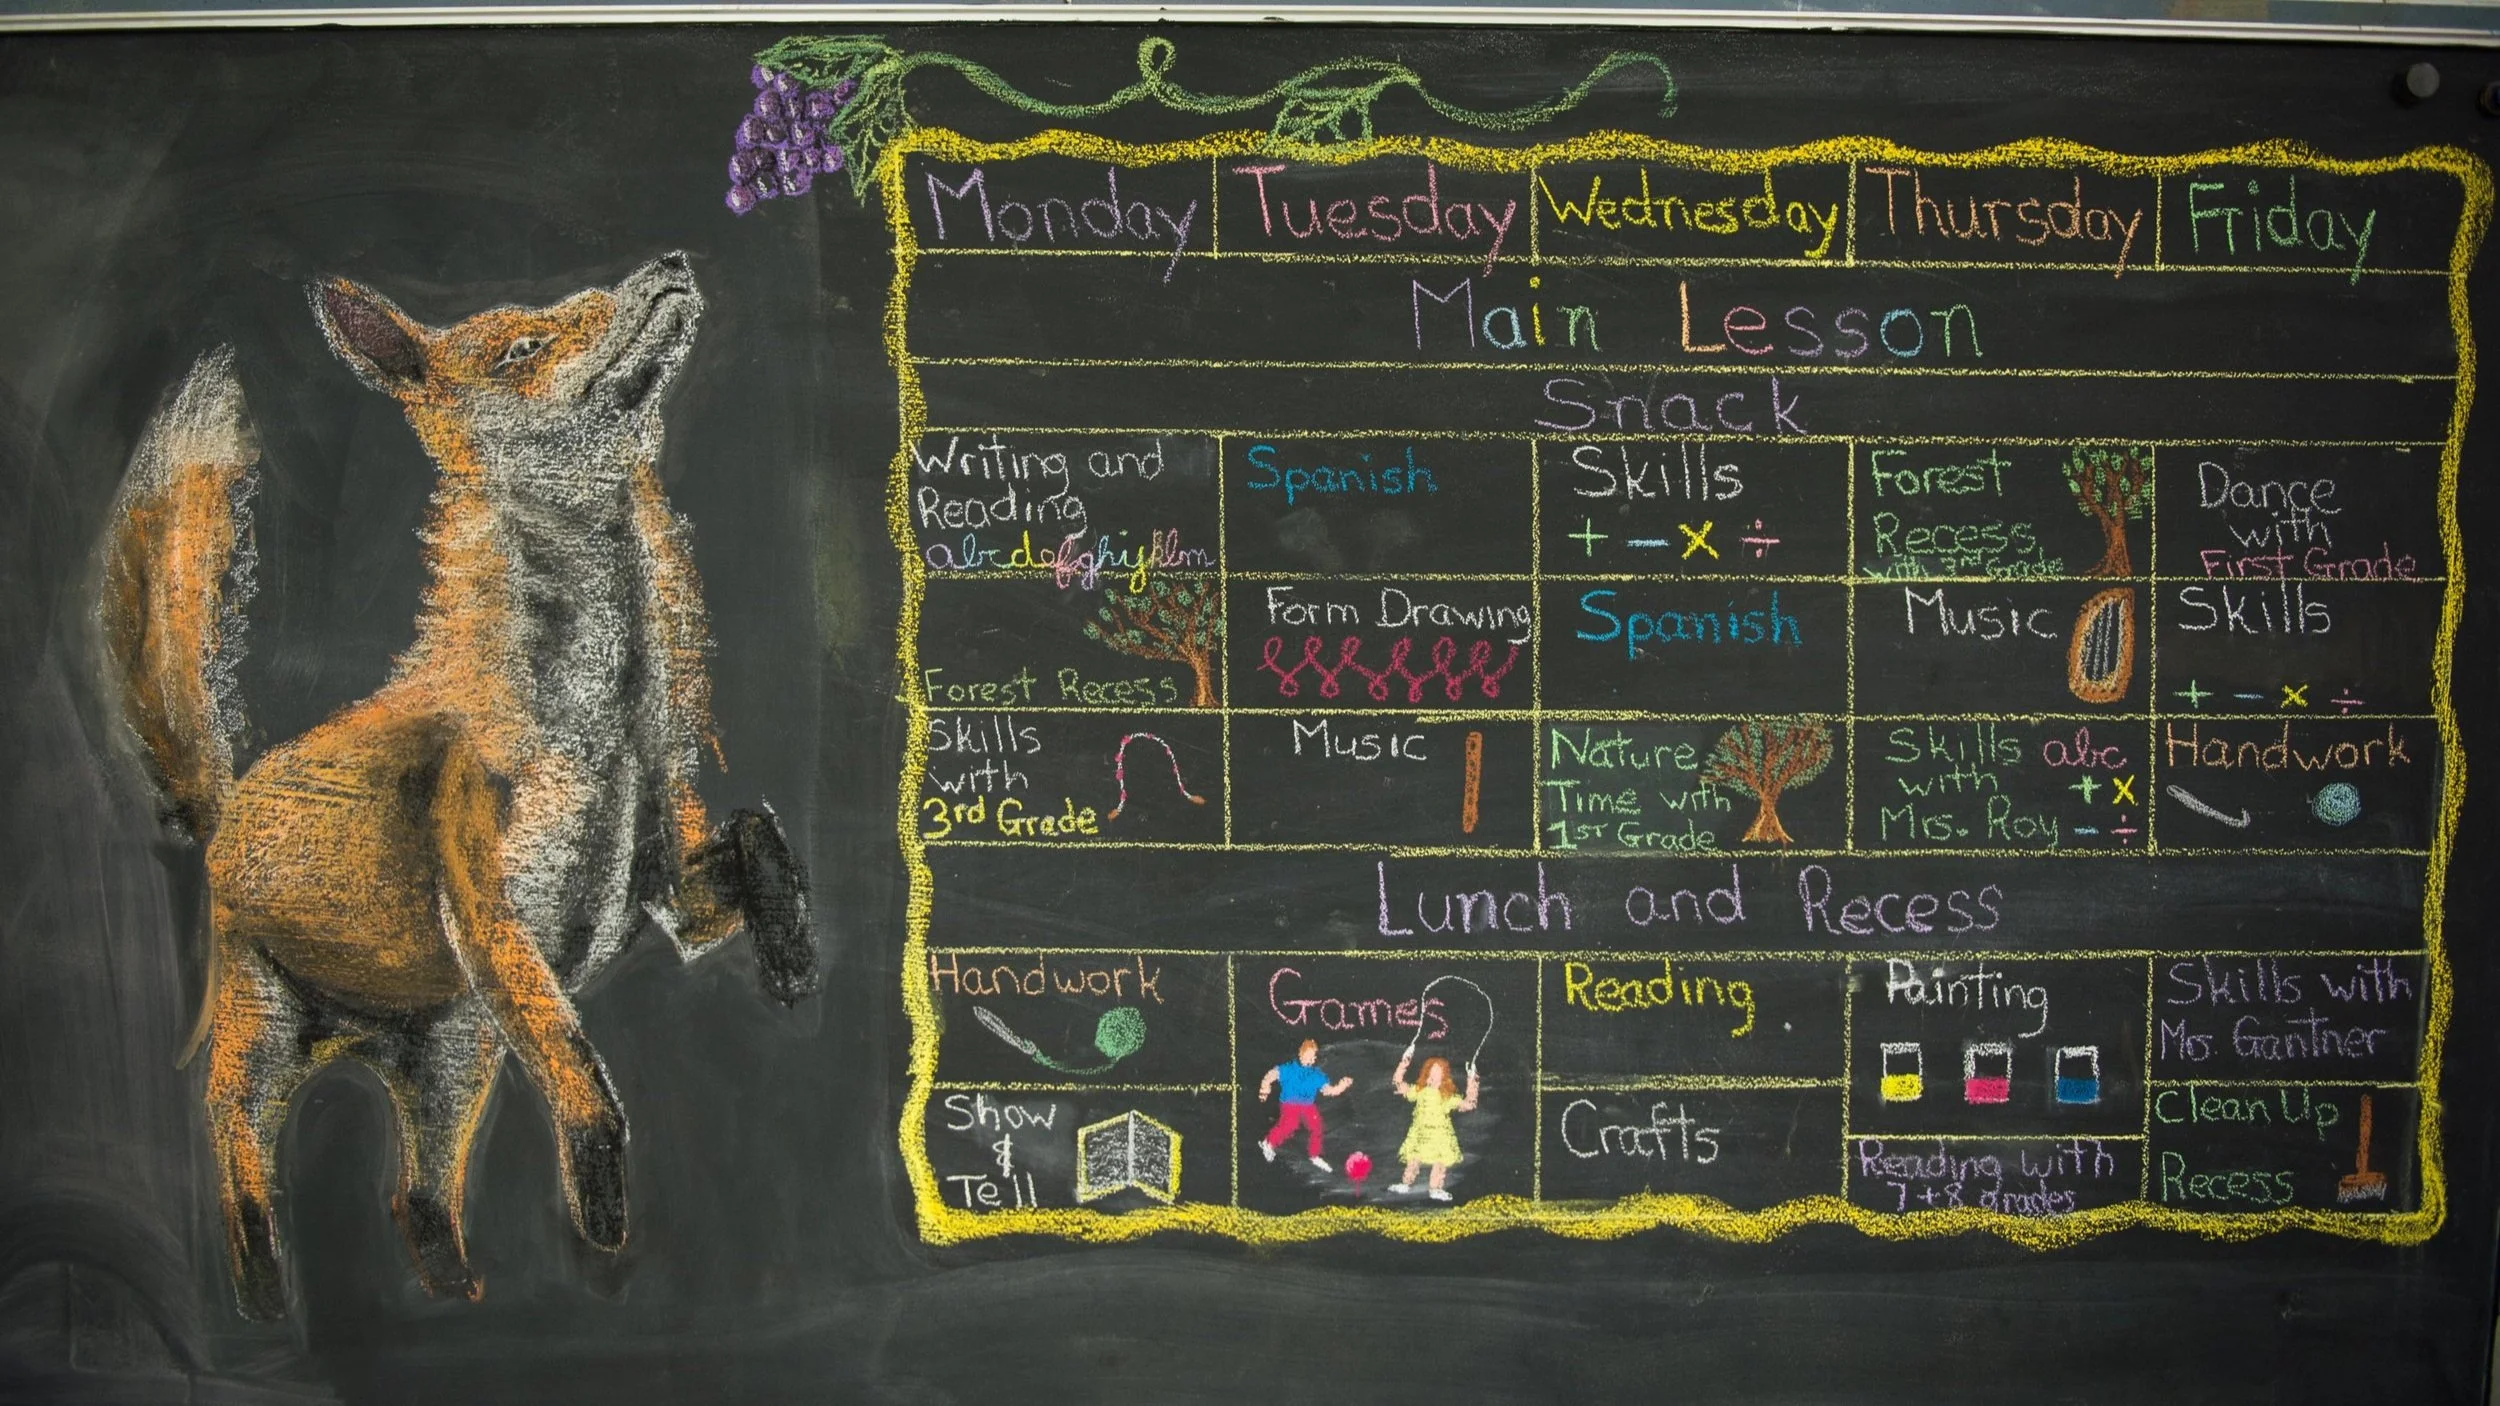 Monday Tuesday Wednesday Thursday Friday
Main Lesson
Snack
Writing and
Reading
abcdefghijklm
Spanish
Skills
+ − × ÷
Forest
Recess
with 3rd Grade
Dance
with
First Grade
Forest Recess
Form Drawing
Spanish
Music
Skills
+ − × ÷
Skills
with
3rd Grade
Music
Nature
Time with
1st Grade
Skills abc
with + ×
Mrs. Roy − ÷
Handwork
Lunch and Recess
Handwork
Games
Reading
Painting
Skills with
Ms. Gantner
Show
&
Tell
Crafts
Reading with
7+8 grades
Clean Up
Recess